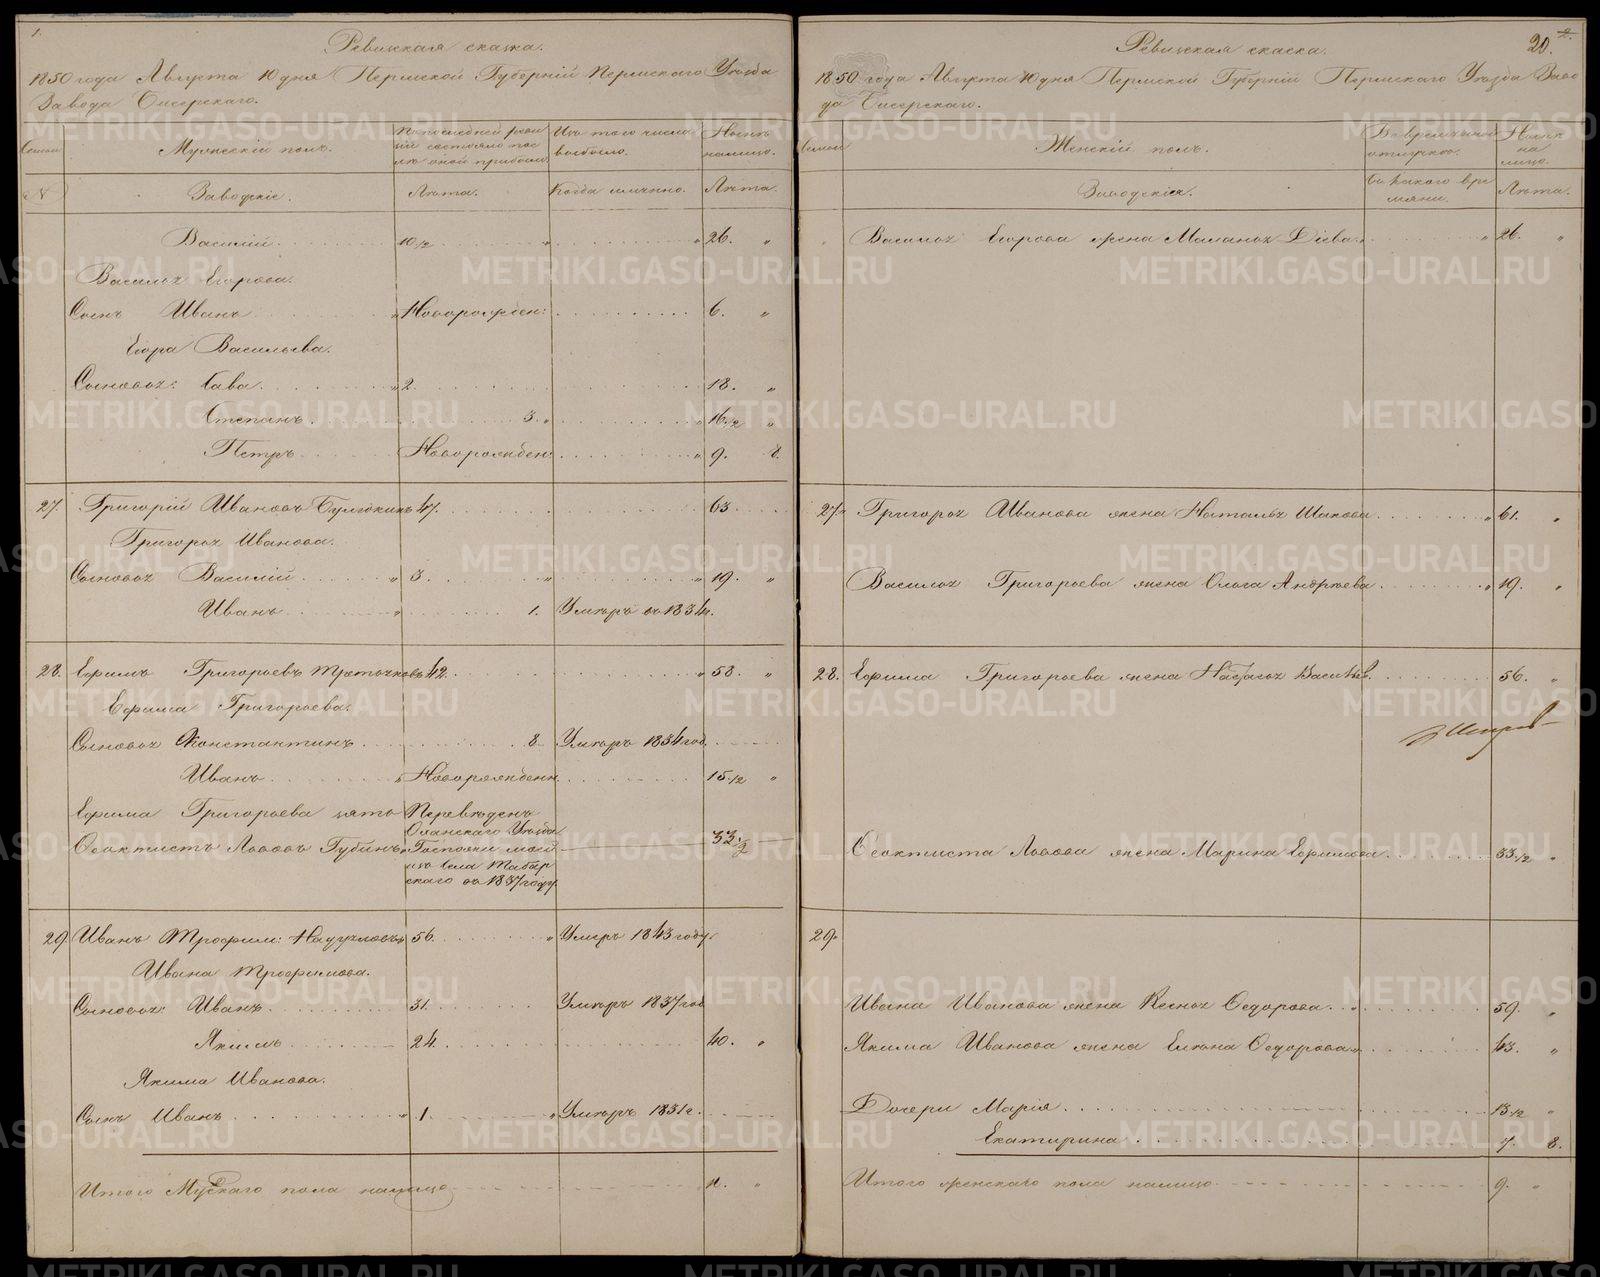 Ревизская сказка.
1850 года Августа 10 дня Пермской Губерніи Пермскаго Уѣзда
Завода Бисерскаго.
Семьи
Мужескій полъ.
По последней реви
зіи состояло пос
лѣ оной прибыло.
Изъ того числа
выбыло.
Нынѣ
налицо.
N
Заводскіе.
Лѣта.
Когда имянно.
Лѣта.
Василій 10½ 26.
Василья Егорова.
Сынъ Иванъ Новорожден: 6.
Егора Васильева.
Сыновья: Сава 2. 18.
Степанъ 3. 16.½
Петръ Новорожден: 9.
27. Григорій Ивановъ 47. 63
Григорья Иванова.
Сыновья Василій 3. 19.
Иванъ 1. Умѣръ въ 1834г.
28. Ефимъ Григорьевъ 42. 58.
Ефима Григорьева.
Сыновья Константинъ 8 Умѣръ 1834 год.
Иванъ Новорожденн 15.½
Ефима Григорьева зять Переведенъ
Оханскаго Уѣзда
Феоктистъ Львовъ Губинъ Госпожи моей 33.½
изъ села Табор
скаго въ 1837 году.
29. Иванъ Трофим: Наугмовъ 56. Умеръ 1843 году.
Ивана Трофимова.
Сыновья: Иванъ 31. Умѣръ 1837 год
Якимъ 24. 40.
Якима Иванова.
Сынъ Иванъ 1. Умѣръ 1831г.
Итого Мужскаго пола налицо 11.
20.
Ревизская сказка.
1850 года Августа 10 дня Пермской Губерніи Пермскаго Уѣзда Заво
да Бисерскаго.
Семьи
Женскій полъ.
Во временной
отлучкѣ.
Нынѣ
на
лицо.
Заводскія.
Съ какого вре
мяни.
Лѣта.
Василья Егорова жена Маланья Діева 26.
27. Григорья Иванова жена Наталья Исакова 61.
Василья Григорьева жена Ольга Андрѣева 19.
28. Ефима Григорьева жена Настасья Васильев. 56.
Феоктиста Львова жена Марина Ефимова 33.½
29.
Ивана Иванова жена Ксенья Федорова 59.
Якима Иванова жена Елена Федорова 43.
Дочери Марія 13½
Екатирина 7. 8.
Итого женскаго пола налицо 9.
METRIKI.GASO-URAL.RU